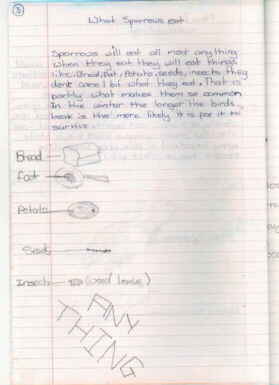 3
What Sparrows eat.
Sparrows will eat all most any thing
when they eat they will eat things
like, Bread, Fat, Potato, seeds, insects they
dont care 1 bit what they eat. That is
partly what makes them so common
In the winter the longer the birds
beak is the more likely it is for it to
survive
Bread
Fat
Potato
Seeds
Insects (wood louse)
ANY
THING